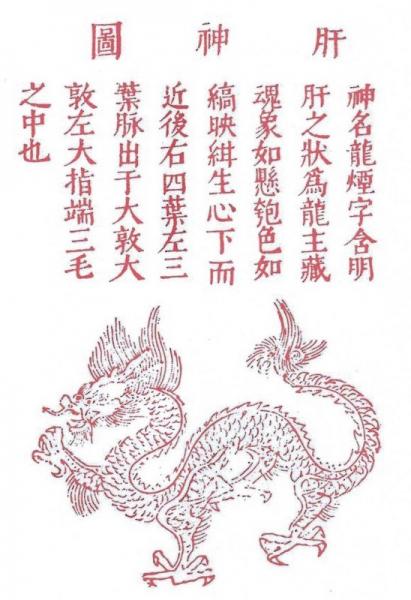 肝神圖
神名龍煙字含明
肝之狀為龍主藏
魂象如懸匏色如
縞映紺生心下而
近後右四葉左三
葉脉出于大敦大
敦左大指端三毛
之中也